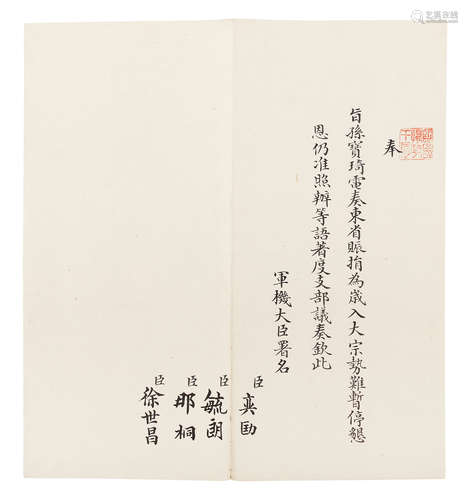 奉
旨孫寶琦電奏東省賑捐為歲入大宗勢難暫停懇
恩仍准照辦等語著度支部議奏欽此
軍機大臣署名
臣奕劻
臣毓朗
臣那桐
臣徐世昌